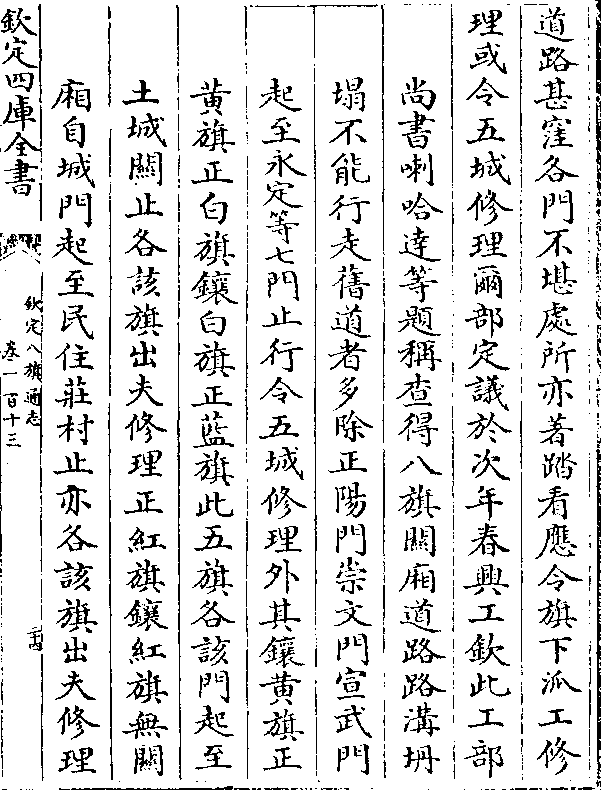 道路甚窪各門不堪處所亦著踏看應令旗下派工修
理或令五城修理爾部定議於次年春興工欽此工部
尚書喇哈達等題稱查得八旗關廂道路路溝坍
塌不能行走舊道者多除正陽門崇文門宣武門
起至永定等七門止行令五城修理外其鑲黃旗正
黃旗正白旗鑲白旗正藍旗此五旗各該門起至
土城關止各該旗出夫修理正紅旗鑲紅旗無關
廂自城門起至民住莊村止亦各該旗出夫修理
欽定四庫全書
欽定八旗通志
卷一百十三
二十四